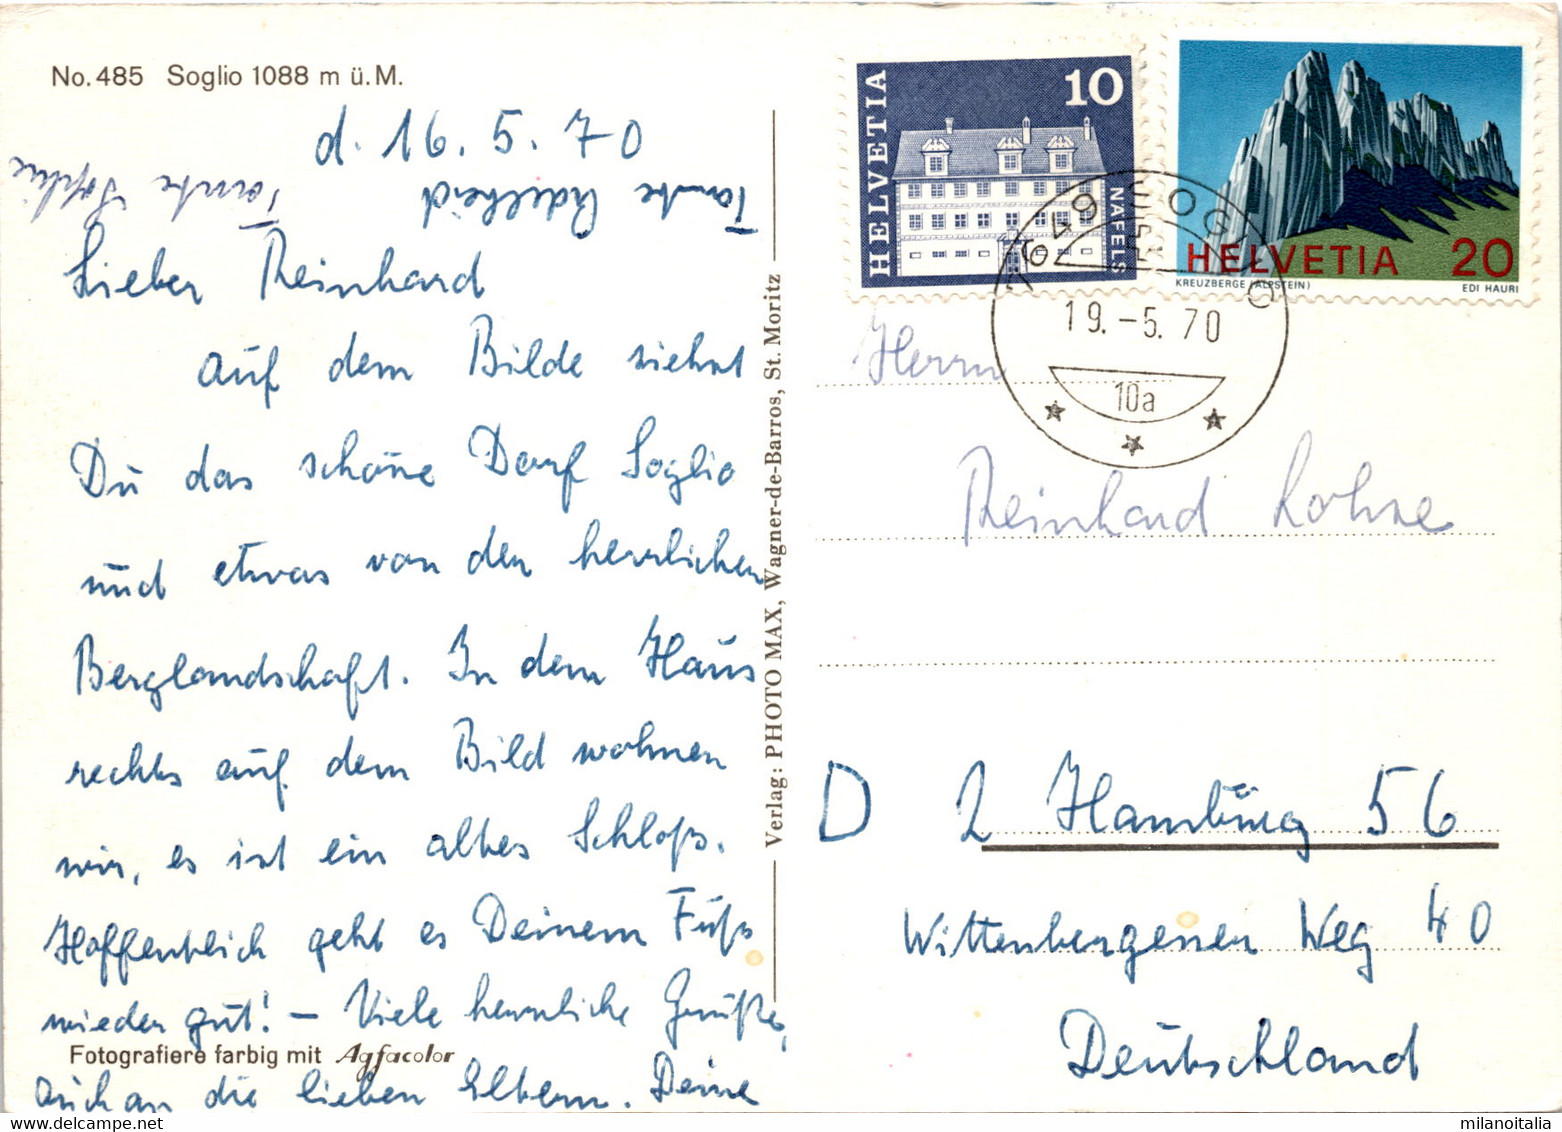 No. 485 Soglio 1088 m ü.M.
d. 16. 5. 70
Lieber Reinhard
auf dem Bilde siehst
Du das schöne Dorf Soglio
und etwas von der herrlichen
Berglandschaft. In dem Haus
rechts auf dem Bild wohnen
wir, es ist ein altes Schloß.
Hoffentlich geht es Deinem Fuß
wieder gut! – Viele herzliche Grüße,
auch an die lieben Eltern. Deine
Tante Adelheid
Tante Sophie
Fotografiere farbig mit Agfacolor
Verlag: PHOTO MAX, Wagner-de-Barros, St. Moritz
HELVETIA
10
NÄFELS
HELVETIA 20
KREUZBERGE (ALPSTEIN)
EDI HAURI
7649 SOGLIO
19.-5.70
10a
Herrn
Reinhard Lohse
D 2 Hamburg 56
Wittenbergener Weg 40
Deutschland
milanoitalia